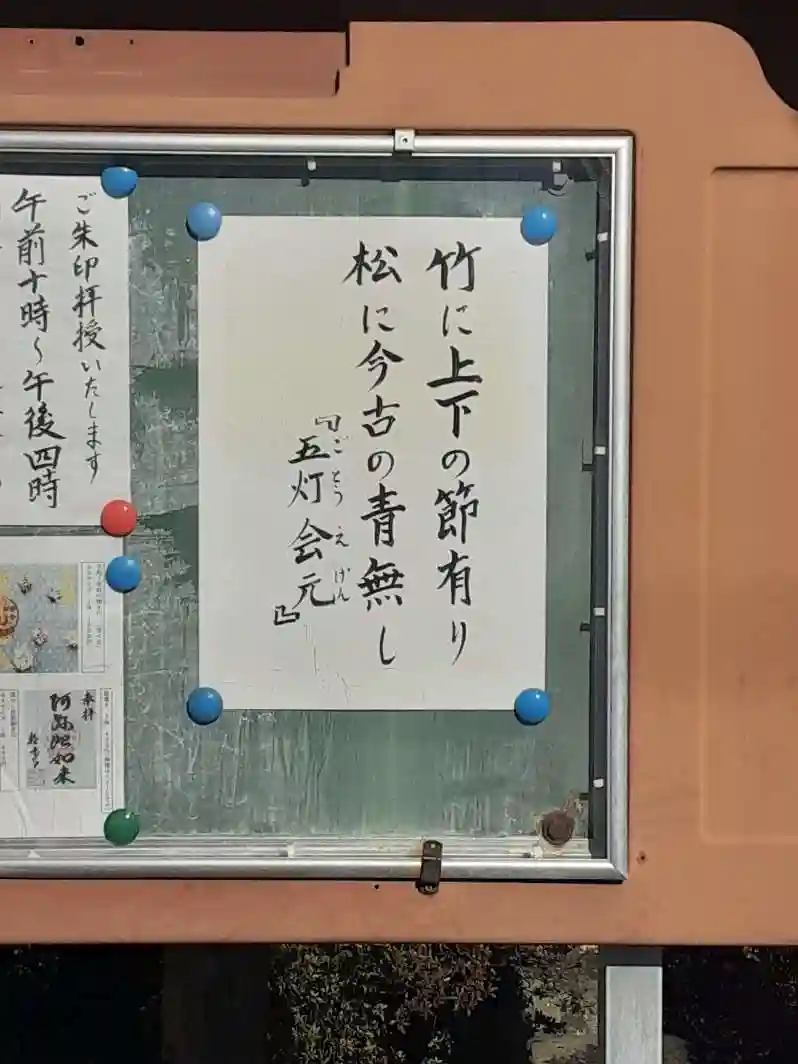 竹に上下の節有り
松に今古の青無し
『五灯会元』
ごとうえげん
ご朱印拝授いたします
午前十時〜午後四時
奉拝
阿弥陀如来